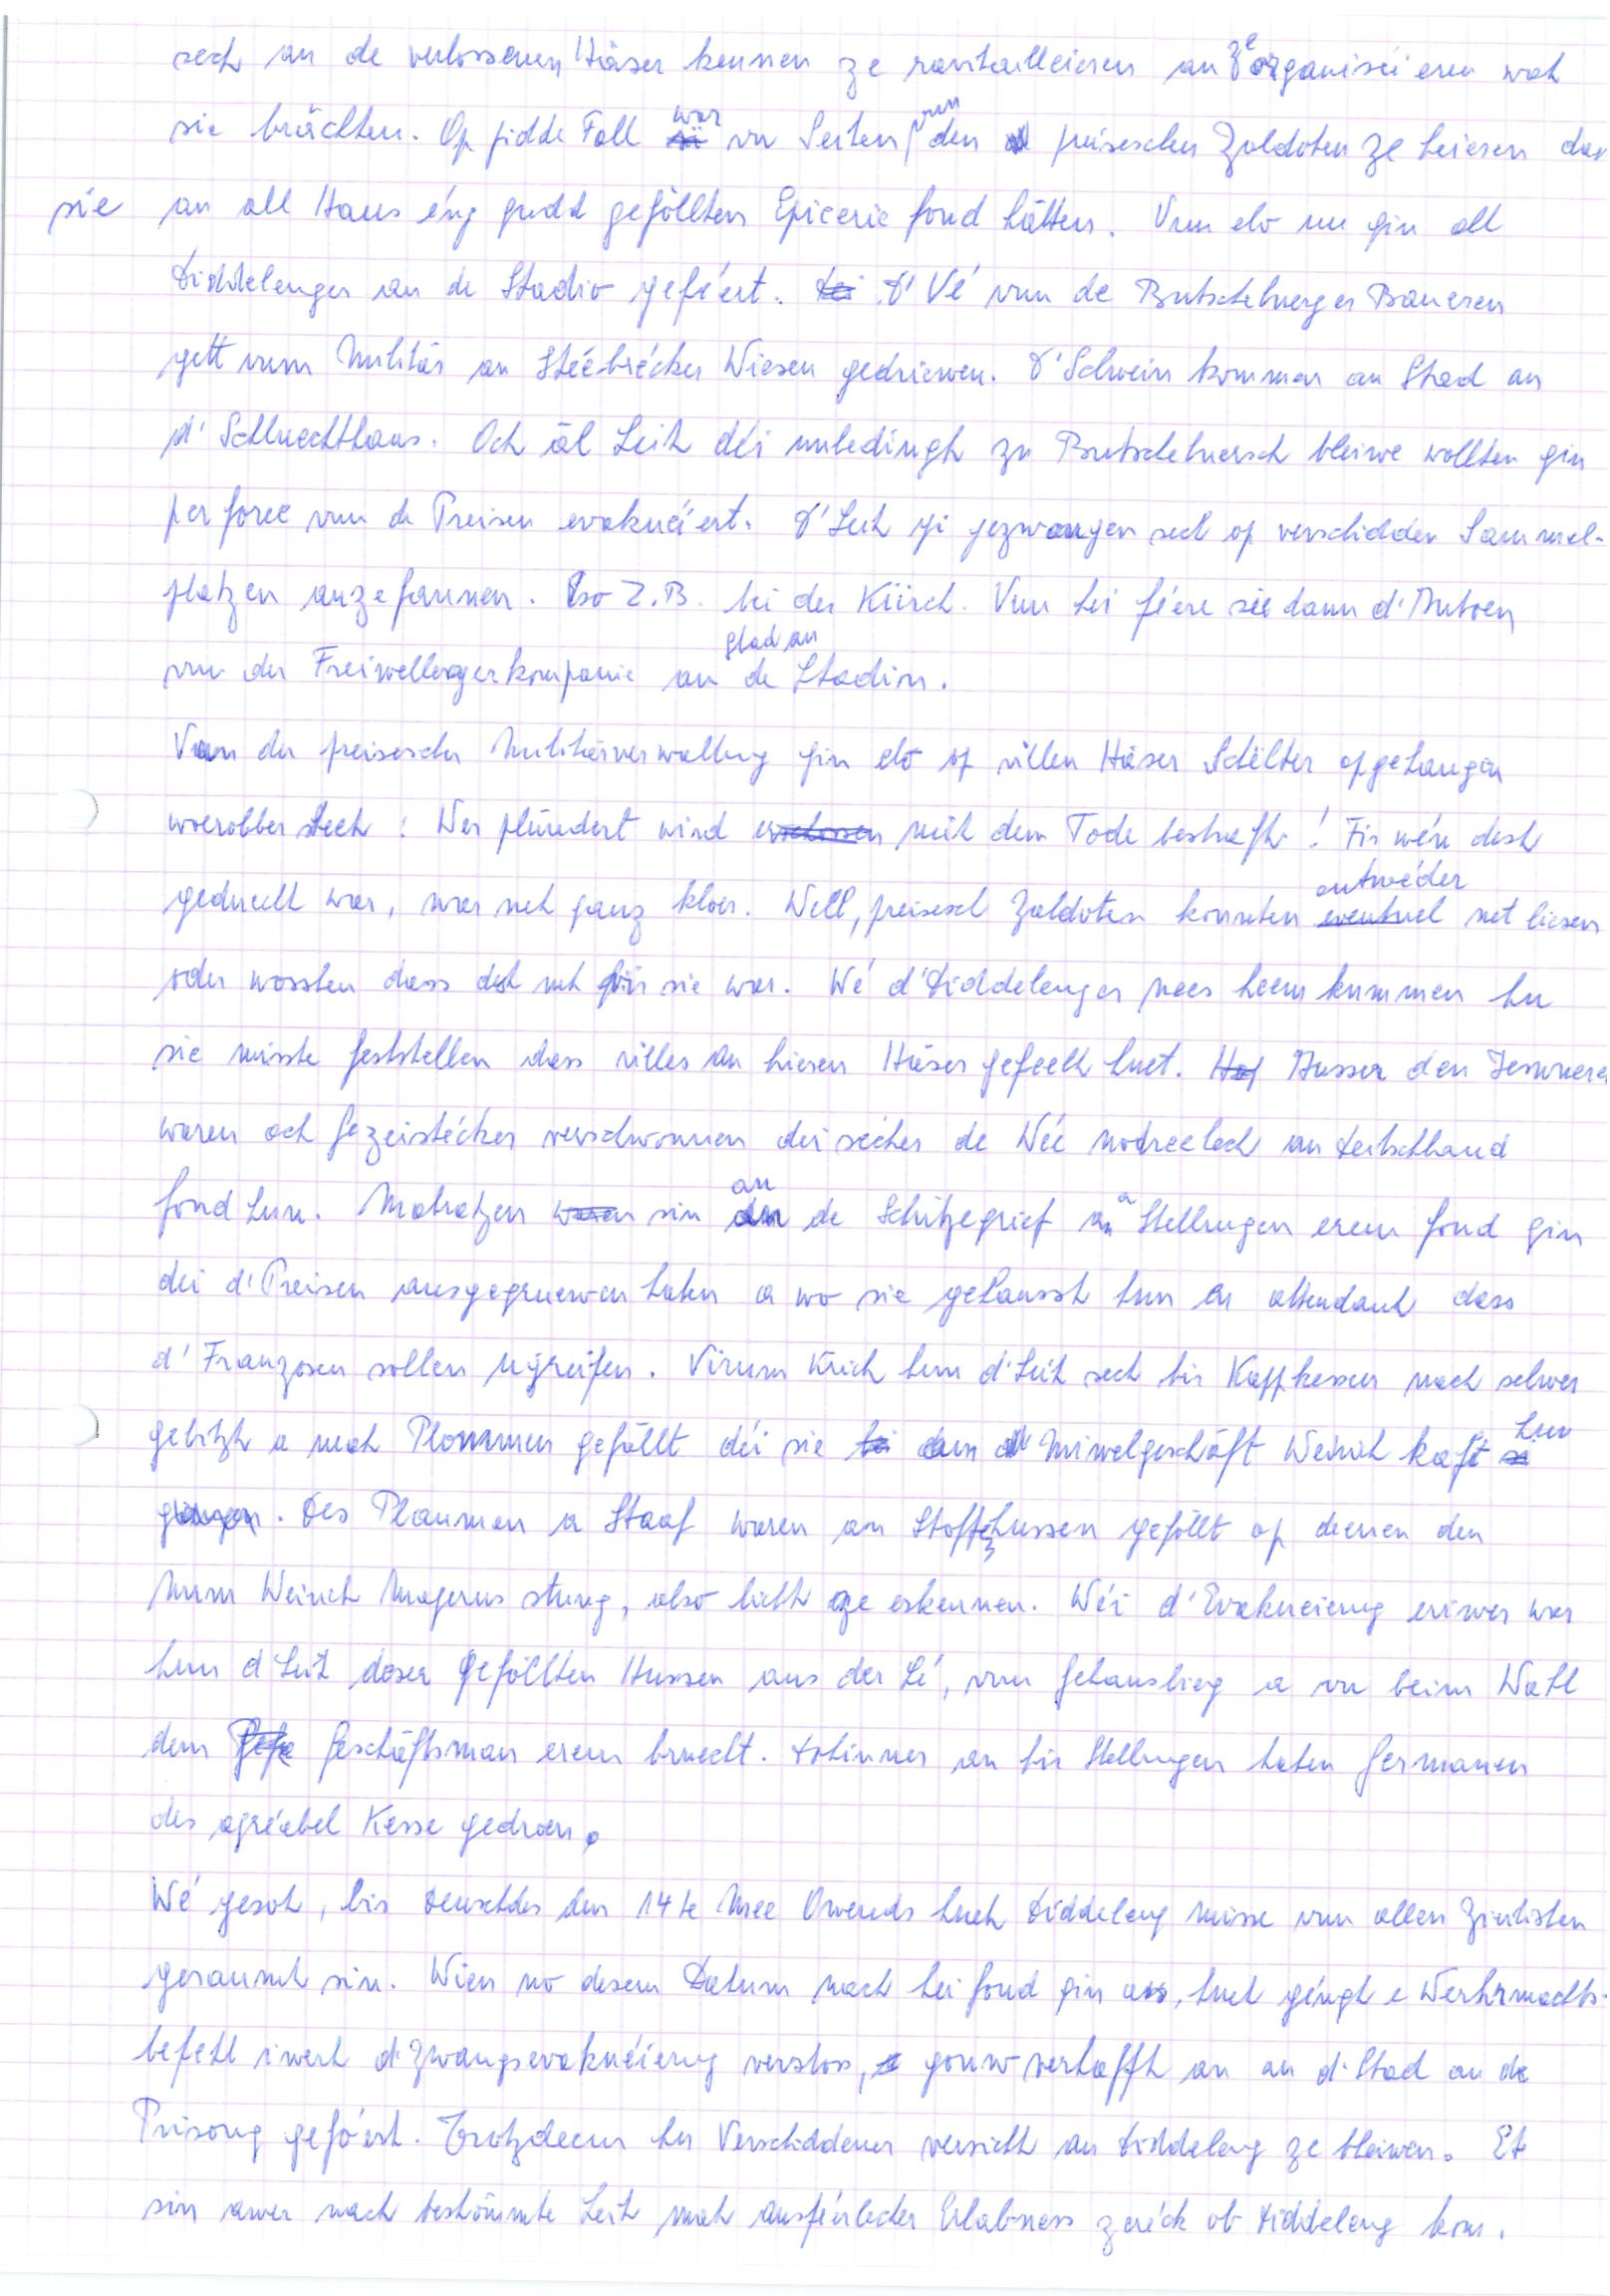 sech an de verlossenen Häser kennen ze ravitailleieren an ze organiséieren wat
sie brächten. Op jidde Fall war vu Seiten vun den preiseschen Zaldoten ze héieren dass
sie an all Haus éng gudd gefëllten Epicerie fond hätten. Vun elo un gin all
Diddelenger an de Stadio geféert. D'Vé vun de Butschebuerger Baueren
gëtt vum Militär an Stéebrécker Wiesen gedriewen. D'Schwein kommen an Stad an
d'Schluechthaus. Och ål Leit déi unbedingt zu Butschebuersch bleiwe wollten gin
per force vun de Preisen evakuéiert. D'Leit gi gezwongen sech op verschidden Sammel-
platzen anzefannen. Eso Z.B. bei der Kiirch. Vun hei féere sie dann d'Autoen
vun der Freiwellegerkompanie glad an an de Stadion.
Vun der preisescher Militärverwaltung gin elo op villen Häser Schëlter opgehangen
woerobber steet : Wer plündert wird erschossen mit dem Tode bestraft ! Fir wéin dest
geduecht war, war net ganz kloer. Well, preisesch Zaldoten konnten entwéder eventuel net liesen
oder wossten dass dest net fir sie war. Wé d'Diddelenger nees heem kummen hu
sie misste feststellen dass villes an hieren Häser gefeelt huet. Ausser den Iesswueren
waren och Gezeistécker verschwonnen déi sécher de Wée nodreelech an Deitschland
fond hun. Matratzen waren sin an de Schützegrief an a Stellungen erem fond gin
déi d'Preisen ausgegruewen haten a wo sie gehausst hun en attendant dass
d'Franzosen sollen ugreifen. Virum Krich hun d'Leit sech hir Kappkessen nach selwer
gebitzt a mat Plommen gefëllt déi sie am Miwelgeschäft Weirich kaft hun
gongen. Des Plaumen a Staaf waren an Stoffhussen gefëllt op deenen den
Numm Weirich Magerus stung, also licht ze erkennen. Wéi d'Evakuéierung eriwer war
hun d'Leit doser gefëllten Hussen aus der Lé, vum Gehaansbierg a vu beim Wahl
dem Geschäftsman erem bruecht. Dohinner an hir Stellungen haten Germanen
des agréabel Kesse gedroen.
Wé gesot, bis Deuschdes den 14te Mee Owends huet Diddeleng misse vun allen Zivilisten
geraumt sin. Wien no desem Datum nach hei fond gin ass, huet géngt e Wehrmachts-
befehl iwert d'Zwangsevakuéierung verstoss, gouw verhafft an an d'Stad an de
Prisong geféert. Trotzdeem hu Verschiddener versicht an Diddeleng ze bleiwen. Et
sin awer nach bestëmmte Leit mat ausféierlecher Erlabness zeréck ob Diddeleng kom.